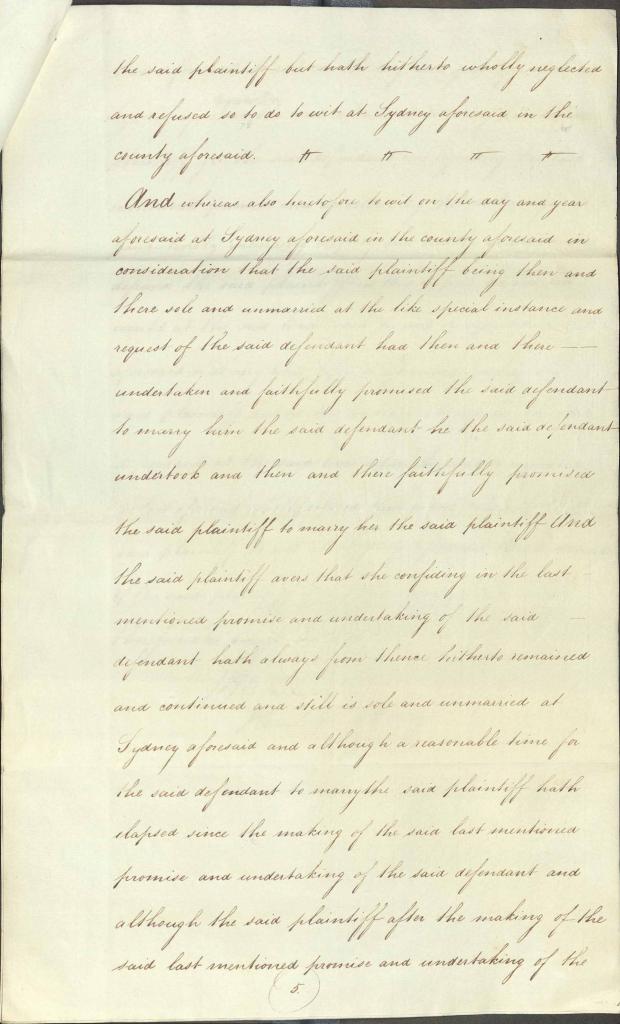 the said plaintiff but hath hitherto wholly neglected
and refused so to do to wit at Sydney aforesaid in the
county aforesaid.
And whereas also heretofore to wit on the day and year
aforesaid at Sydney aforesaid in the county aforesaid in
consideration that the said plaintiff being then and
there sole and unmarried at the like special instance and
request of the said defendant had then and there —
undertaken and faithfully promised the said defendant
to marry him the said defendant he the said defendant
undertook and then and there faithfully promised
the said plaintiff to marry her the said plaintiff And
the said plaintiff avers that she confiding in the last
mentioned promise and undertaking of the said —
defendant hath always from thence hitherto remained
and continued and still is sole and unmarried at
Sydney aforesaid and although a reasonable time for
the said defendant to marry the said plaintiff hath
elapsed since the making of the said last mentioned
promise and undertaking of the said defendant and
although the said plaintiff after the making of the
said last mentioned promise and undertaking of the
5.